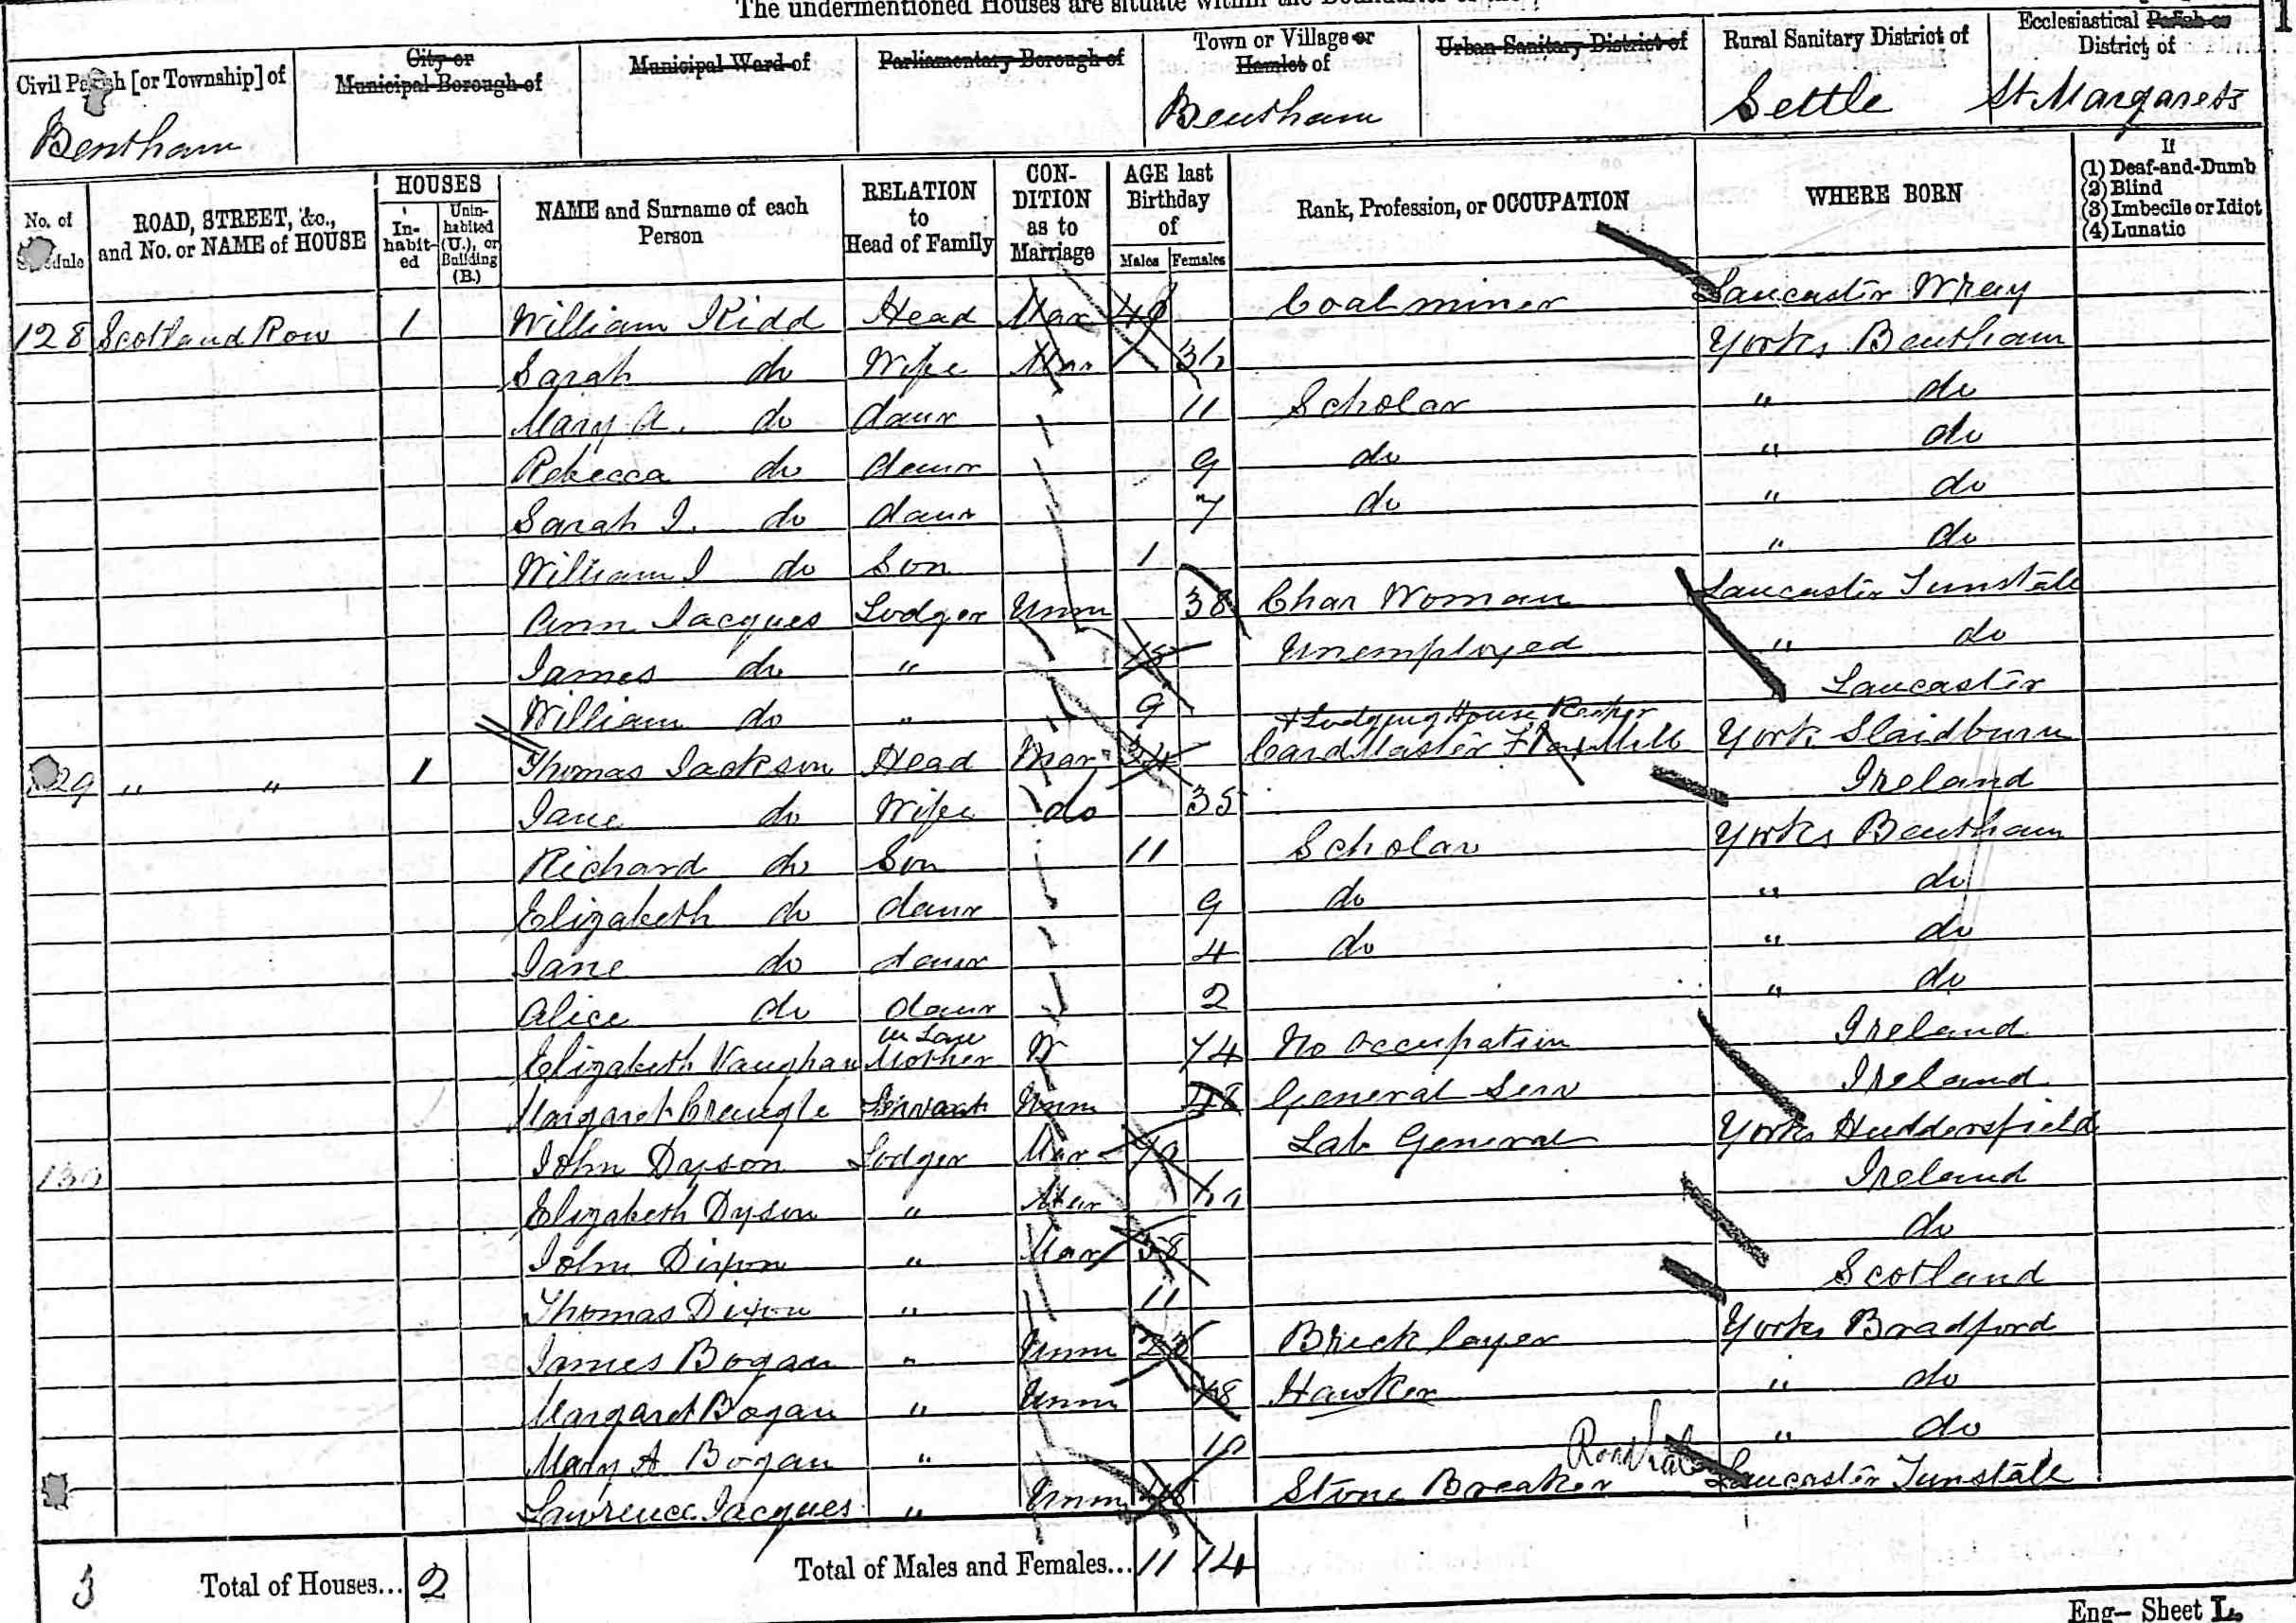 The undermentioned Houses are situate within the Boundaries of the
Civil Parish [or Township] of
Bentham
City or Municipal Borough of
Municipal Ward of
Parliamentary Borough of
Town or Village or Hamlet of
Bentham
Urban Sanitary District of
Rural Sanitary District of
Settle
Ecclesiastical Parish or District of
St Margarets
No. of Schedule
ROAD, STREET, &c., and No. or NAME of HOUSE
HOUSES
In-habit-ed
Unin-habited (U.), or Building (B.)
NAME and Surname of each Person
RELATION to Head of Family
CON-DITION as to Marriage
AGE last Birthday of
Males Females
Rank, Profession, or OCCUPATION
WHERE BORN
If
(1) Deaf-and-Dumb
(2) Blind
(3) Imbecile or Idiot
(4) Lunatic
128 Scotland Row 1 William Kidd Head Mar Coal miner Lancaster Wray
Sarah do Wife Mar 36 Yorks Bentham
Mary A. do daur 11 Scholar " do
Rebecca do daur 9 do " do
Sarah J. do daur 7 do " do
William J do Son 1 " do
Ann Jacques Lodger Unm 38 Char Woman Lancaster Tunstall
James do " 18 Unemployed " do
William do " 9 Lancaster
+ Lodging House Keeper
129 " " 1 Thomas Jackson Head Mar 34 Card Master Flax Mill York Slaidburn
Jane do Wife do 35 Ireland
Richard do Son 11 Scholar Yorks Bentham
Elizabeth do daur 9 do " do
Jane do daur 4 do " do
Alice do daur 2 " do
in Law
Elizabeth Vaughan Mother W 74 No occupation Ireland
Margaret Servant Unm 48 General Serv Ireland
130 John Dyson Lodger Mar Lab General Yorks Huddersfield
Elizabeth Dyson " Mar Ireland
John Dixon " Mar 58 do
Thomas Dixon " 11 Scotland
James Bogan " Unm Brick layer Yorks Bradford
Margaret Bogan " Unm 48 Hawker " do
Mary A Bogan " 10 " do
Lawrence Jacques " Unm Stone Breaker Lancaster Tunstall
3 Total of Houses... 2 Total of Males and Females... 11 14
Eng— Sheet L.